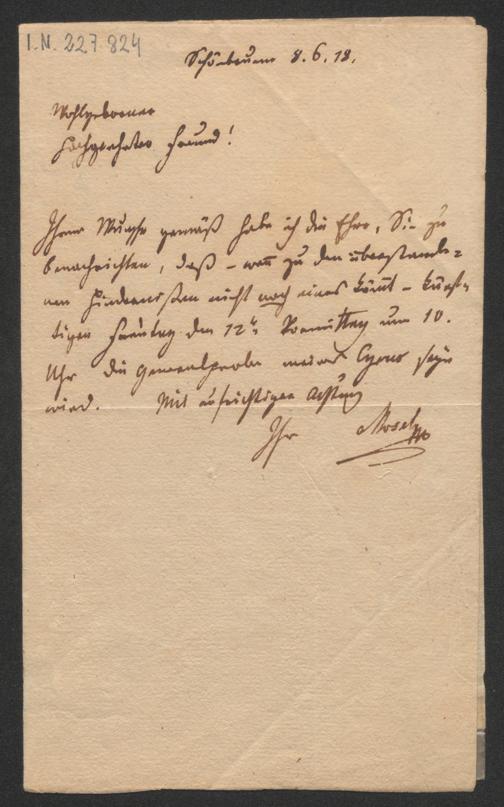 I.N. 227.824
Schönbrunn 8. 6. 18.
Wohlgeborner
Hochgeehrter Freund!
Ihrem Wunsche gemäß habe ich die Ehre, Sie zu
benachrichten, daß – weñ zu den überstande=
nen Hindernißen nicht noch eines köm̃t – künf=
tigen Freytag den 12ten Vormittag um 10.
Uhr die Generalprobe meines Cyrus seyn
wird. Mit aufrichtiger Achtung
Ihr Mosel